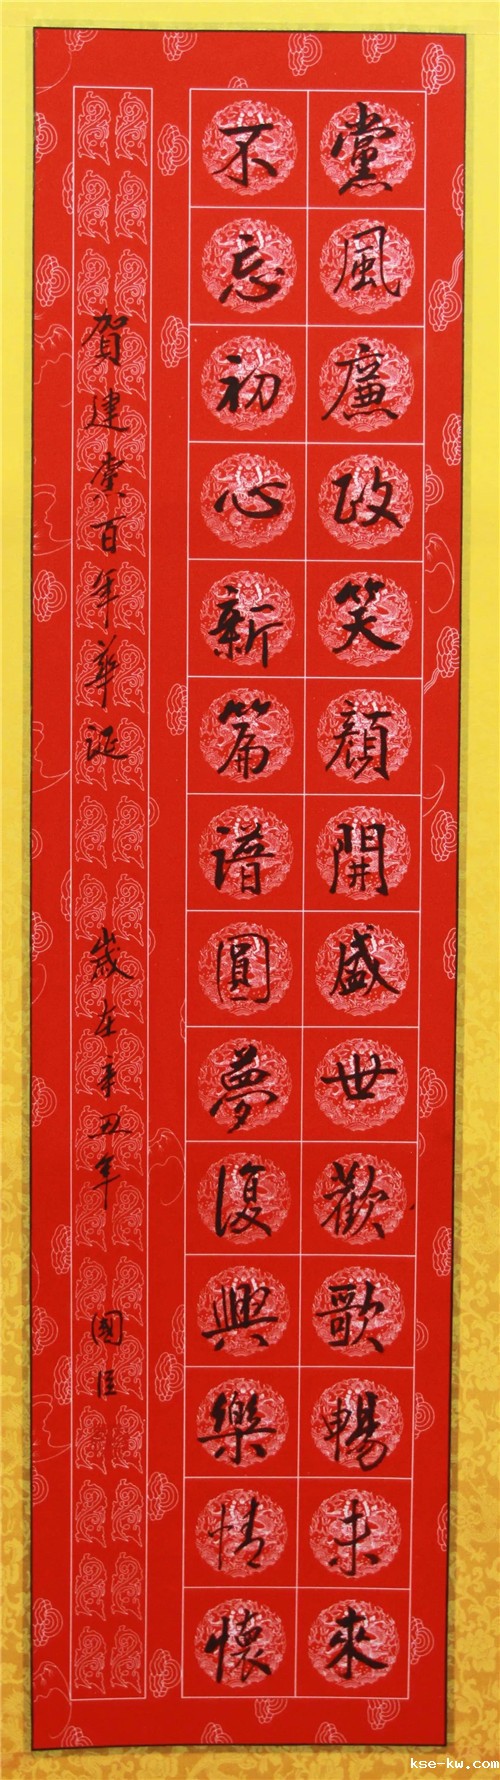 黨風廉政笑顏開盛世歡歌暢未來
不忘初心新篇譜圓夢復興樂情懷
賀建党百年華誕 歲在辛丑年 國臣
kse-kw.com